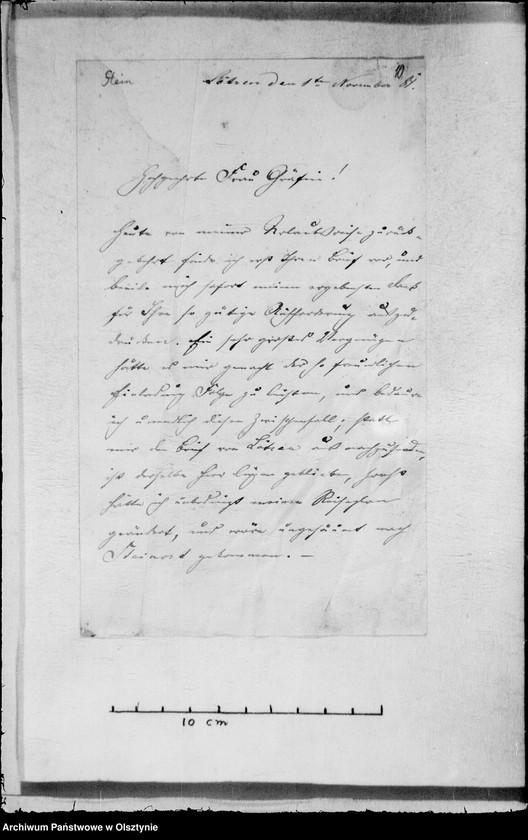 Stein
Lötzen den 1ten November 81.
Hochgeehrte Frau Gräfin!
Heute von meiner Urlaubsreise zurück-
gekehrt finde ich erst Ihren Brief vor, und
beeile mich sofort meinen ergebensten Dank
für Ihre so gütige Aufforderung auszu-
drücken. Ein sehr großes Vergnügen
hätte es mir gemacht der so freundlichen
Einladung Folge zu leisten, und bedaure
ich unendlich diesen Zwischenfall; statt
mir den Brief von Lötzen aus nachzusenden,
ist derselbe hier liegen geblieben, sonst
hätte ich unbedingt meinen Reiseplan
geändert, und wäre ungesäumt nach
Steinort gekommen. —
10 cm
Archiwum Państwowe w Olsztynie